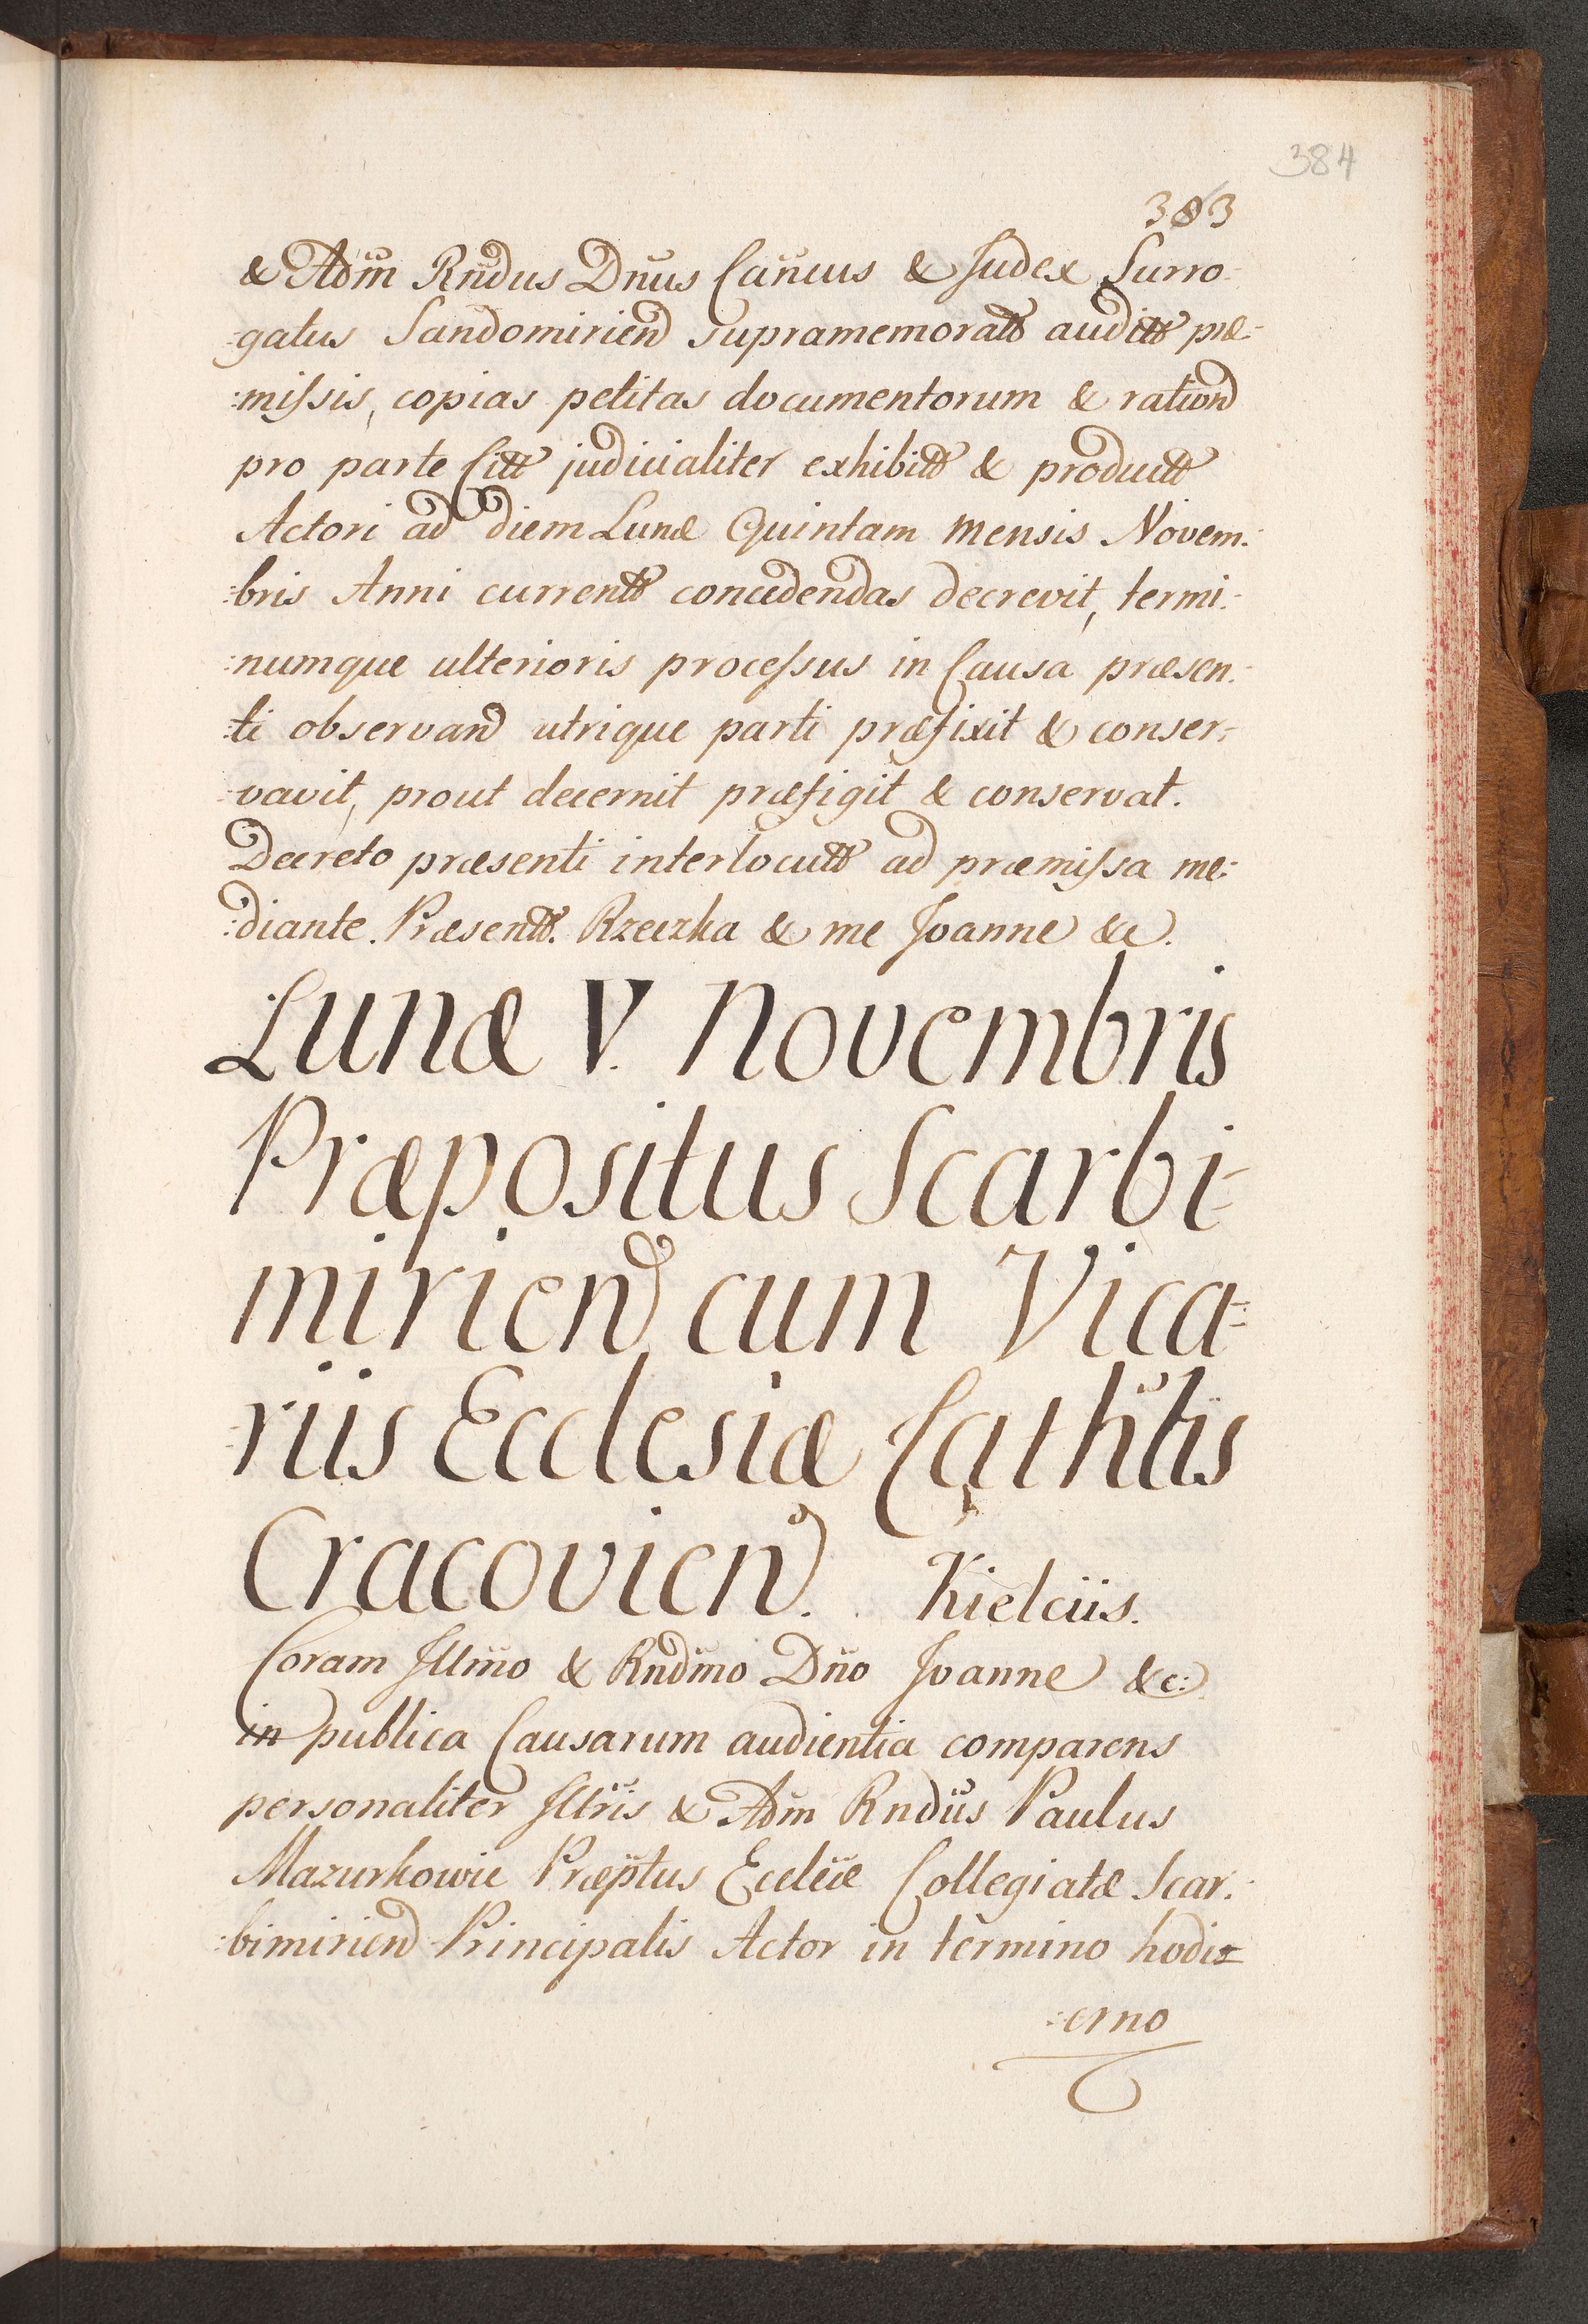 384
383
& Adm̃ Rñdus Dñus Cañcus & Judex Surro-
:gatus Sandomirien̄ supramemoratt̃ auditt̃ præ-
:missis, copias petitas documentorum & ration̄
pro parte Citt̃ judicialiter exhibitt̃ & productt̃
Actori ad diem Lunæ Quintam Mensis Novem:
:bris Anni currentt̃ concedendas decrevit, termi:
:numque ulterioris processus in Causa præsen:
:ti observan̄ utrique parti præfixit & conser:
:vavit, prout decernit præfigit & conservat.
Decreto præsenti interlocutt̃ ad præmissa me:
:diante. Præsentt̃. Rzeczka & me Joanne &c.
Lunæ V. Novembris
Præpositus Scarbi-
mirien̄ cum Vica=
=riis Ecclesiæ Cathlis
Cracovien̄. Kielciis.
Coram Illmo & Rndmo Dño Joanne &c:
in publica Causarum audientia comparens
personaliter Illris & Adm̃ Rndus Paulus
Mazurkowic Præptus Eccliæ Collegiatæ Scar:
:bimirien̄ Principalis Actor in termino hodi=
:erno